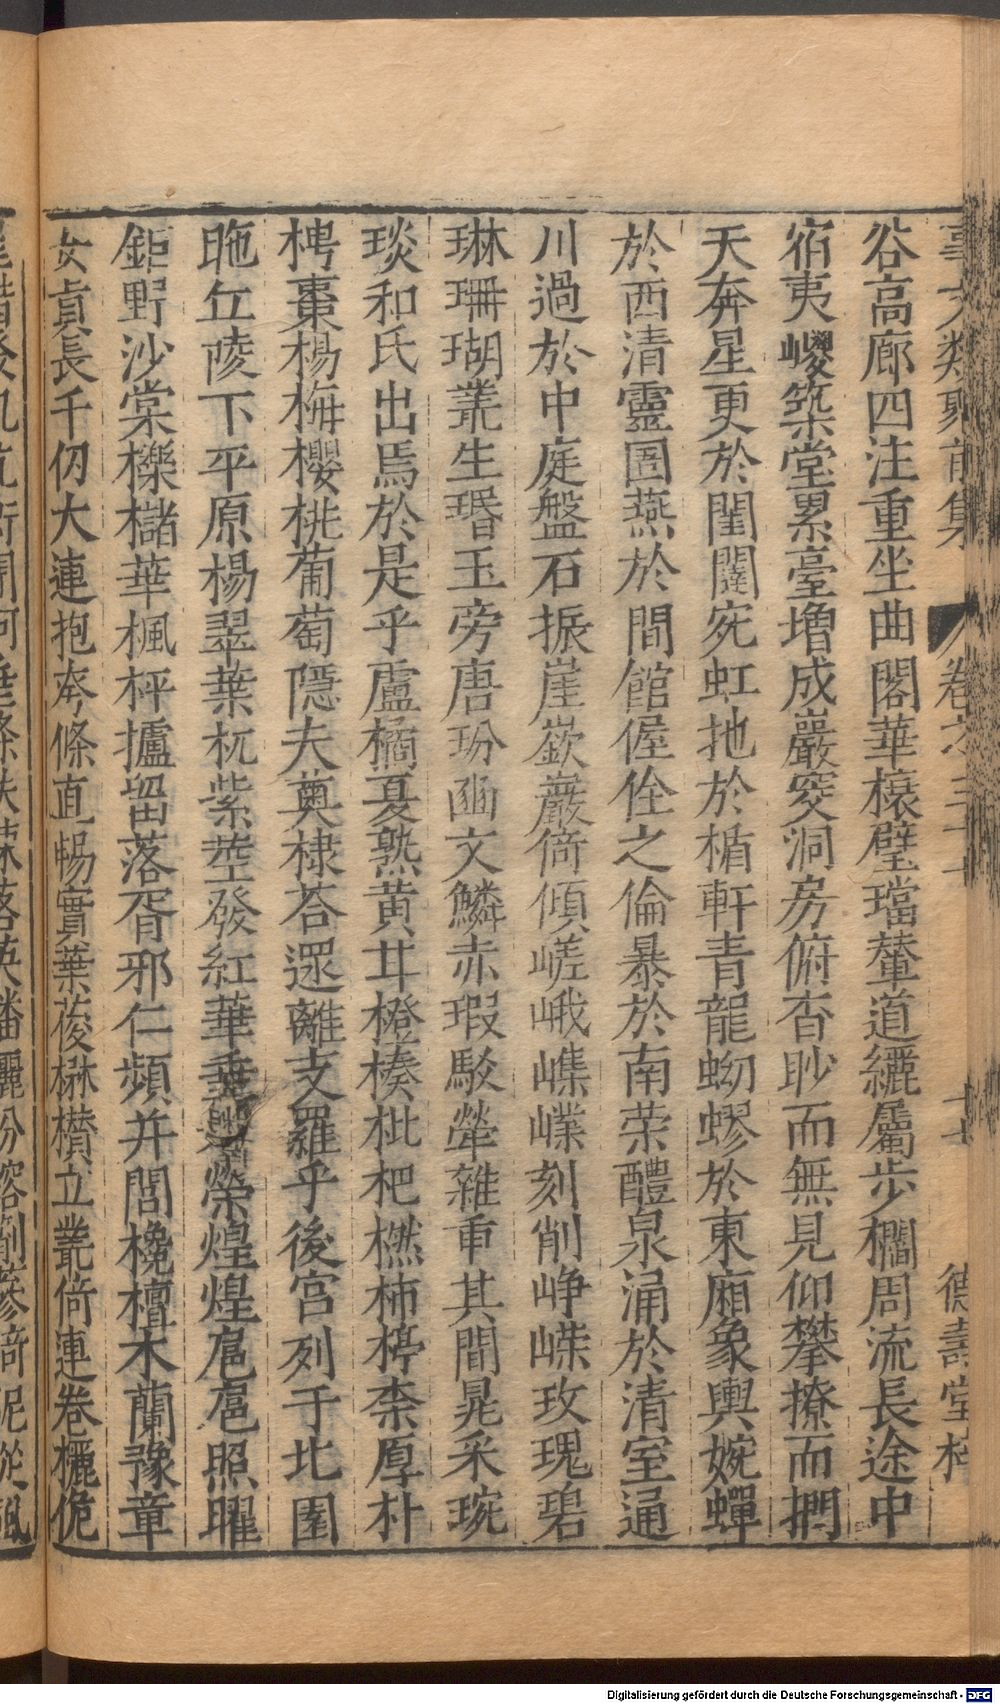 事文類聚前集 卷之三十七 十七 德壽堂梓
谷高廊四注重坐曲閣華榱璧璫輦道纚屬步櫩周流長途中
宿夷嵕築堂累臺增成巖窔洞房俯杳眇而無見仰攀撩而捫
天奔星更於閨闥宛虹扡於楯軒青龍蚴蟉於東廂象輿婉蟬
於西清靈圄燕於閒館偓佺之倫暴於南榮醴泉涌於清室通
川過於中庭盤石振崖嶔巖倚傾嵯峨嶕嶫刻削崢嶸玫瑰碧
琳珊瑚叢生瑉玉旁唐玢豳文鱗赤瑕駁犖雜臿其間晁采琬
琰和氏出焉於是乎盧橘夏熟黃甘橙楱枇杷橪柿楟柰厚朴
梬棗楊梅櫻桃葡萄隱夫薁棣荅遝離支羅乎後宮列于北園
貤丘陵下平原揚翠葉杌紫莖發紅華垂朱榮煌煌扈扈照曜
鉅野沙棠櫟櫧華楓枰攎留落胥邪仁頻并閭欃檀木蘭豫章
女貞長千仞大連抱夸條直暢實葉葰楙欑立叢倚連卷欐佹
Digitalisierung gefördert durch die Deutsche Forschungsgemeinschaft - DFG